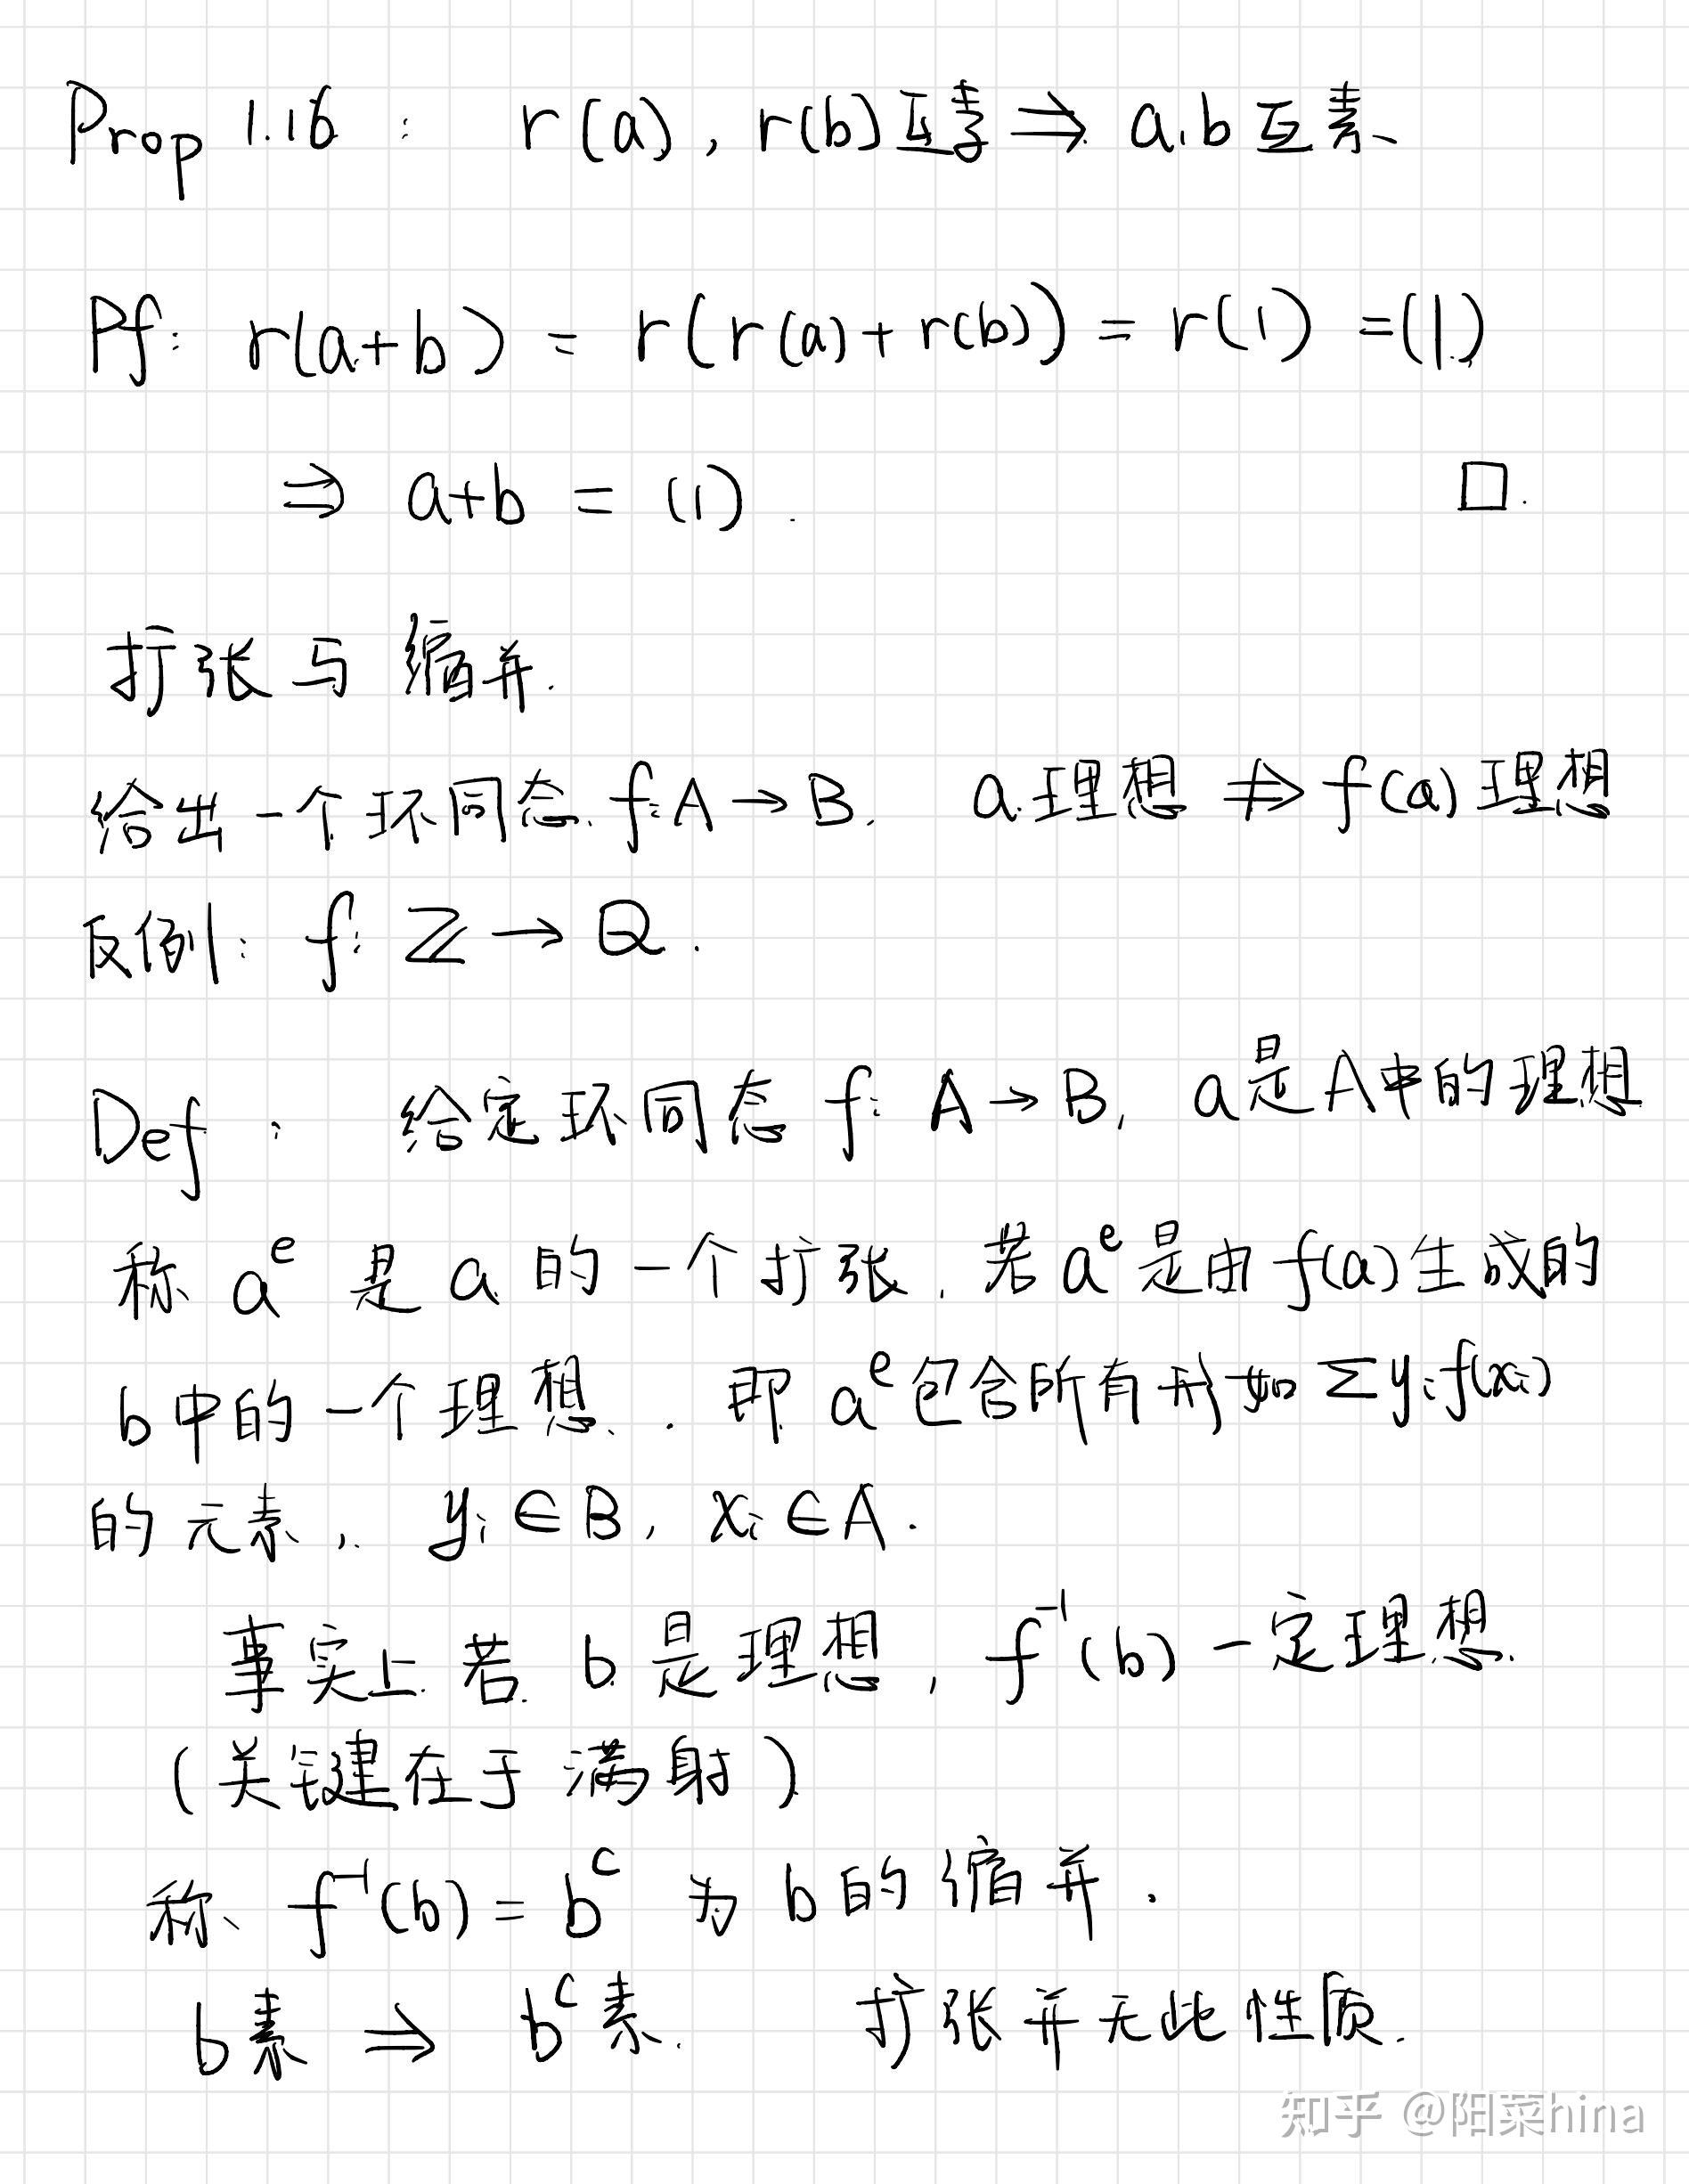 Prop 1.16 : r(a), r(b)互素 ⇒ a.b 互素.
Pf: r(a+b) = r(r(a)+r(b)) = r(1) = (1)
⇒ a+b = (1). □.
扩张与缩并.
给出一个环同态. f: A → B. a.理想 ⇏ f(a)理想
反例: f: ℤ → Q.
Def : 给定环同态 f: A → B, a是A中的理想
称 aᵉ 是 a 的一个扩张. 若 aᵉ 是由 f(a)生成的
b中的一个理想. 即 aᵉ包含所有形如 Σyᵢf(xᵢ)
的元素, yᵢ∈B, xᵢ∈A.
事实上 若 b 是理想, f⁻¹(b) 一定理想.
(关键在于满射)
称 f⁻¹(b) = bᶜ 为 b 的缩并.
b素 ⇒ bᶜ素. 扩张并无此性质.
知乎 @阳菜hina